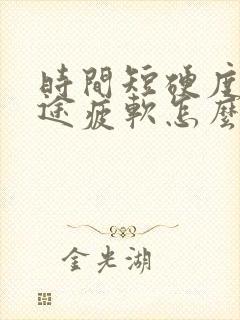 時間短硬度
途疲軟怎麼
金光湖